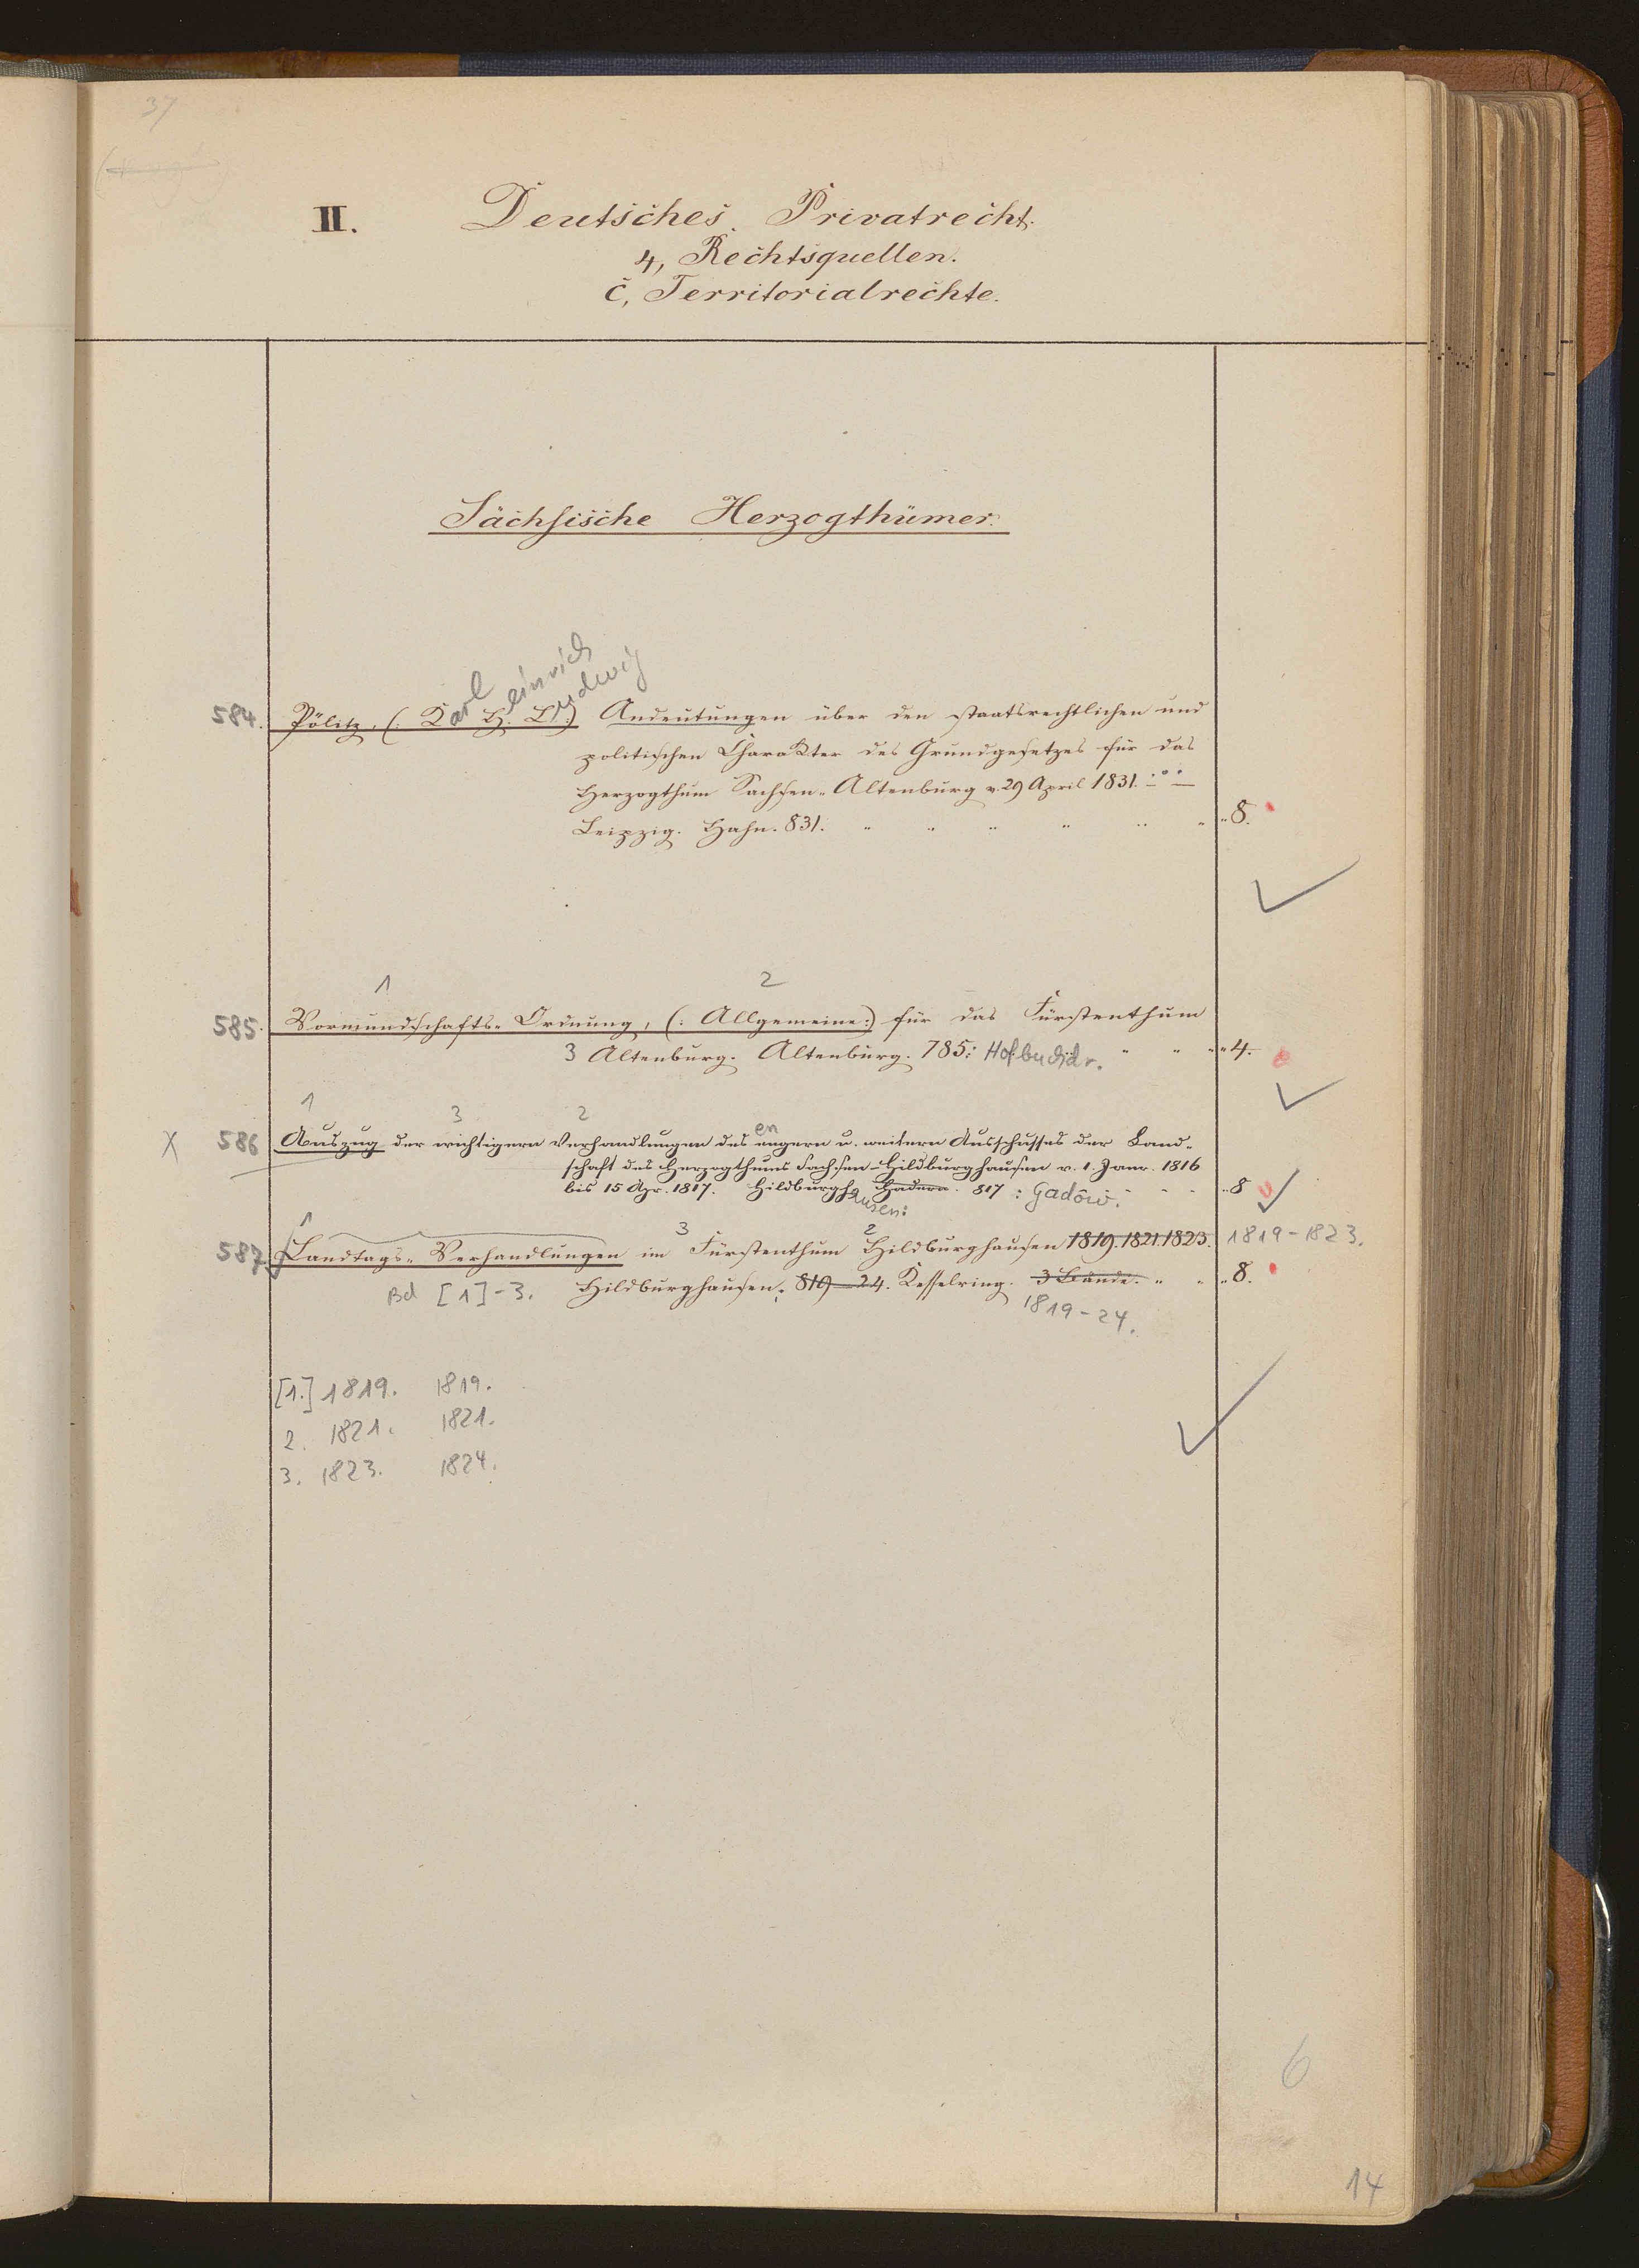 37
II. Deutsches Privatrecht.
4, Rechtsquellen.
c, Territorialrechte.
Sächsische Herzogthümer.
584. Pölitz, (: Karl Heinrich Ludwig :) Andeutungen über den staatsrechtlichen und
politischen Charakter des Grundgesetzes für das
Herzogthum Sachsen-Altenburg v. 29 April 1831.
Leipzig. Hahn. 831. " " " " " " " 8.
1 2
585. Vormundschafts-Ordnung, (: Allgemeine :) für das Fürstenthum
3 Altenburg. Altenburg. 785: Hofbuchdr. " " " 4.
1 3 2
X 586 Auszug der wichtigern Verhandlungen des engern u. weitern Ausschusses der Land-
schaft des Herzogthums Sachsen-Hildburghausen v. 1. Janr. 1816
bis 15 Apr. 1817. Hildburghausen: 817 : Gadow. " " " 8
1 3 2
587. Landtags-Verhandlungen im Fürstenthum Hildburghausen 1819.1821.1823. 1819-1823.
Bd [1]-3. Hildburghausen. 819-24. Kesselring. 3 Bände. " " " 8.
1819-24.
[1.] 1819. 1819.
2. 1821. 1821.
3. 1823. 1824.
6
14